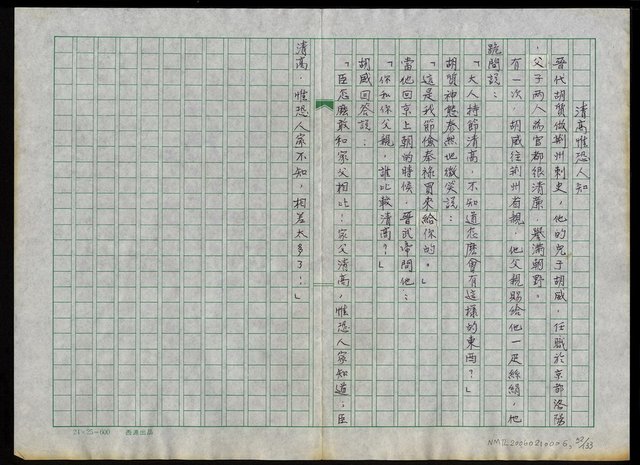 清高惟恐人知
晉代胡質做荊州刺史，他的兒子胡威，任職於京都洛陽
，父子兩人為官都很清廉，譽滿朝野。
有一次，胡威往荊州省親，他父親賜給他一疋絲絹，他
跪問說：
「大人持節清高，不知道怎麼會有這樣的東西？」
胡質神態泰然地微笑說：
「這是我節儉奉祿買來給你的。」
當他回京上朝的時候，晉武帝問他：
「你和你父親，誰比較清高？」
胡威回答說：
「臣怎麼敢和家父相比！家父清高，惟恐人家知道；臣
清高，惟恐人家不知，相差太多了！」
21×25=600
NMTL20060210006